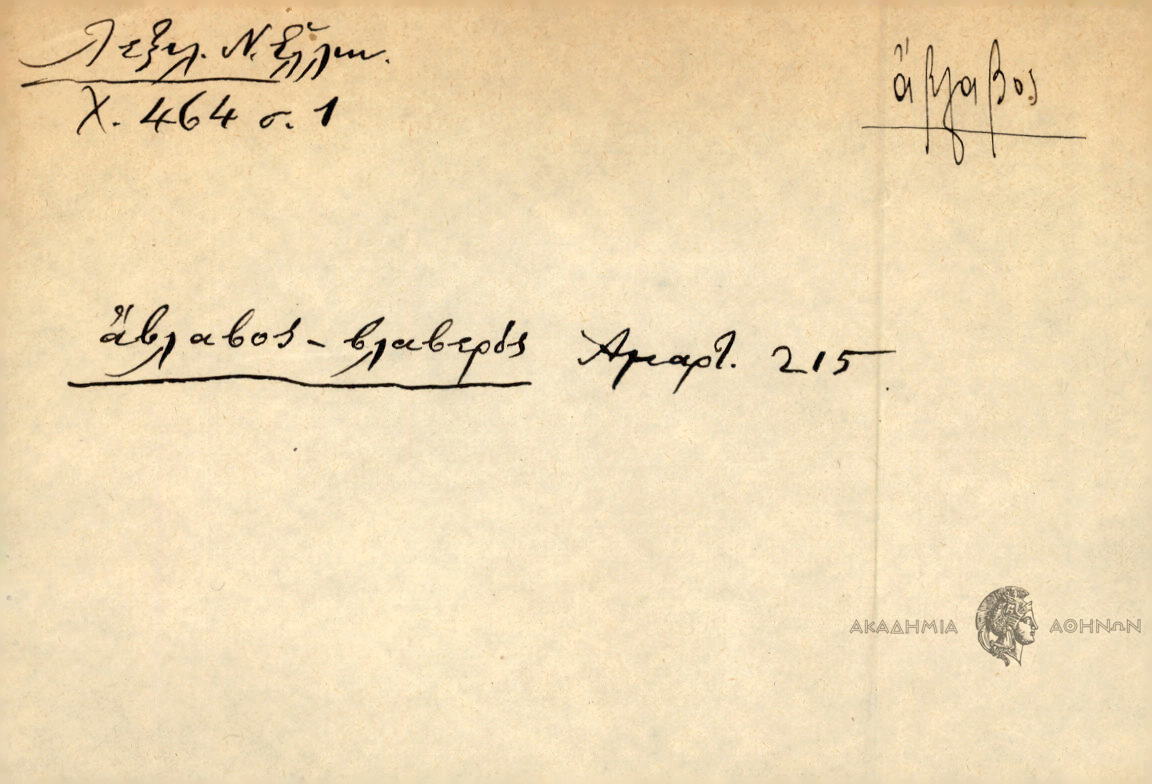 Λεξιλ. Ν. Ἑλλην.
Χ. 464 σ. 1
ἄβλαβος
ἄβλαβος - βλαβερός Ἁμαρτ. 215
ΑΚΑΔΗΜΙΑ ΑΘΗΝΩΝ